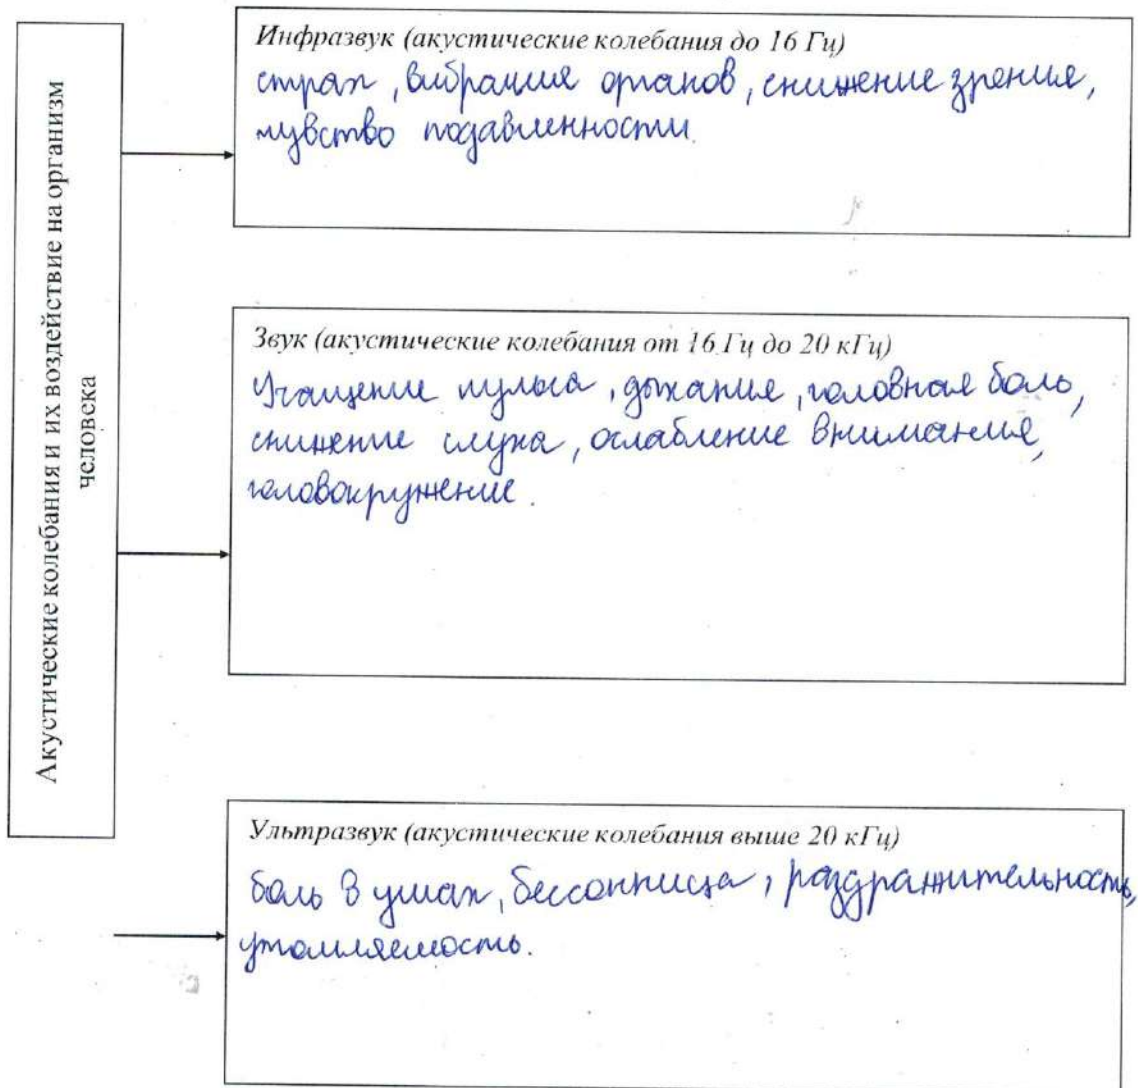 Акустические колебания и их воздействие на организм
человека
Инфразвук (акустические колебания до 16 Гц)
страх, вибрация органов, снижение зрения,
чувство подавленности.
Звук (акустические колебания от 16 Гц до 20 кГц)
Учащение пульса, дыхания, головная боль,
снижение слуха, ослабление внимания,
головокружение.
Ультразвук (акустические колебания выше 20 кГц)
боль в ушах, бессонница, раздражительность,
утомляемость.